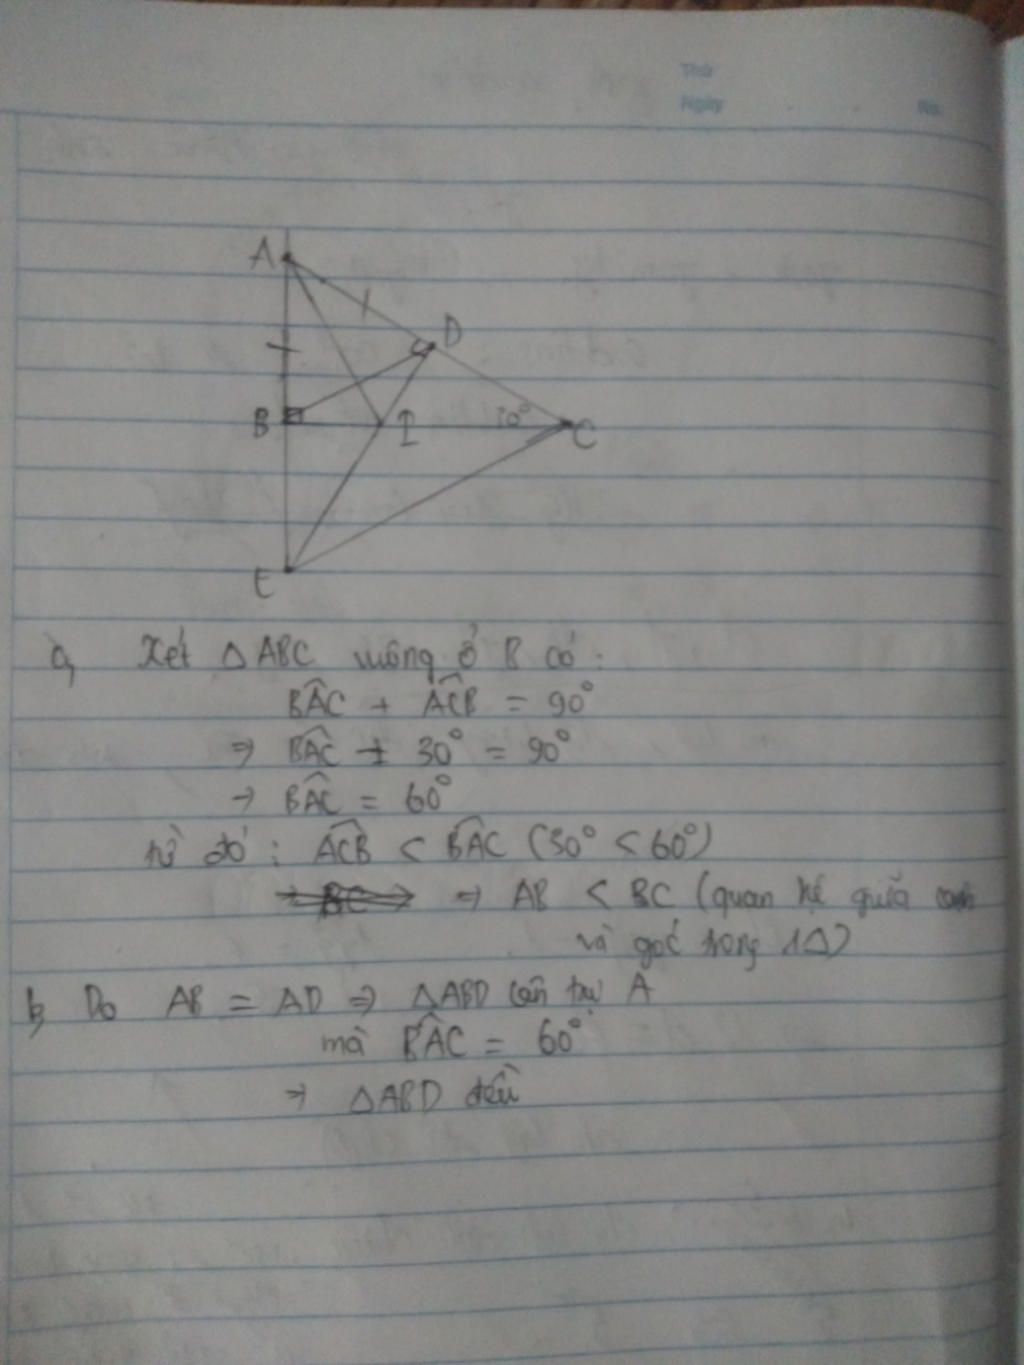 Thứ
Ngày
No.
A
D
B
I
30°
C
E
a, Xét △ABC vuông ở B có:
BÂC + AĈB = 90°
⇒ BÂC + 30° = 90°
→ BÂC = 60°
từ đó: AĈB < BÂC (30° < 60°)
BC ⇒ AB < BC (quan hệ giữa cạnh
và góc trong 1△)
b, Do AB = AD ⇒ △ABD cân tại A
mà BÂC = 60°
⇒ △ABD đều